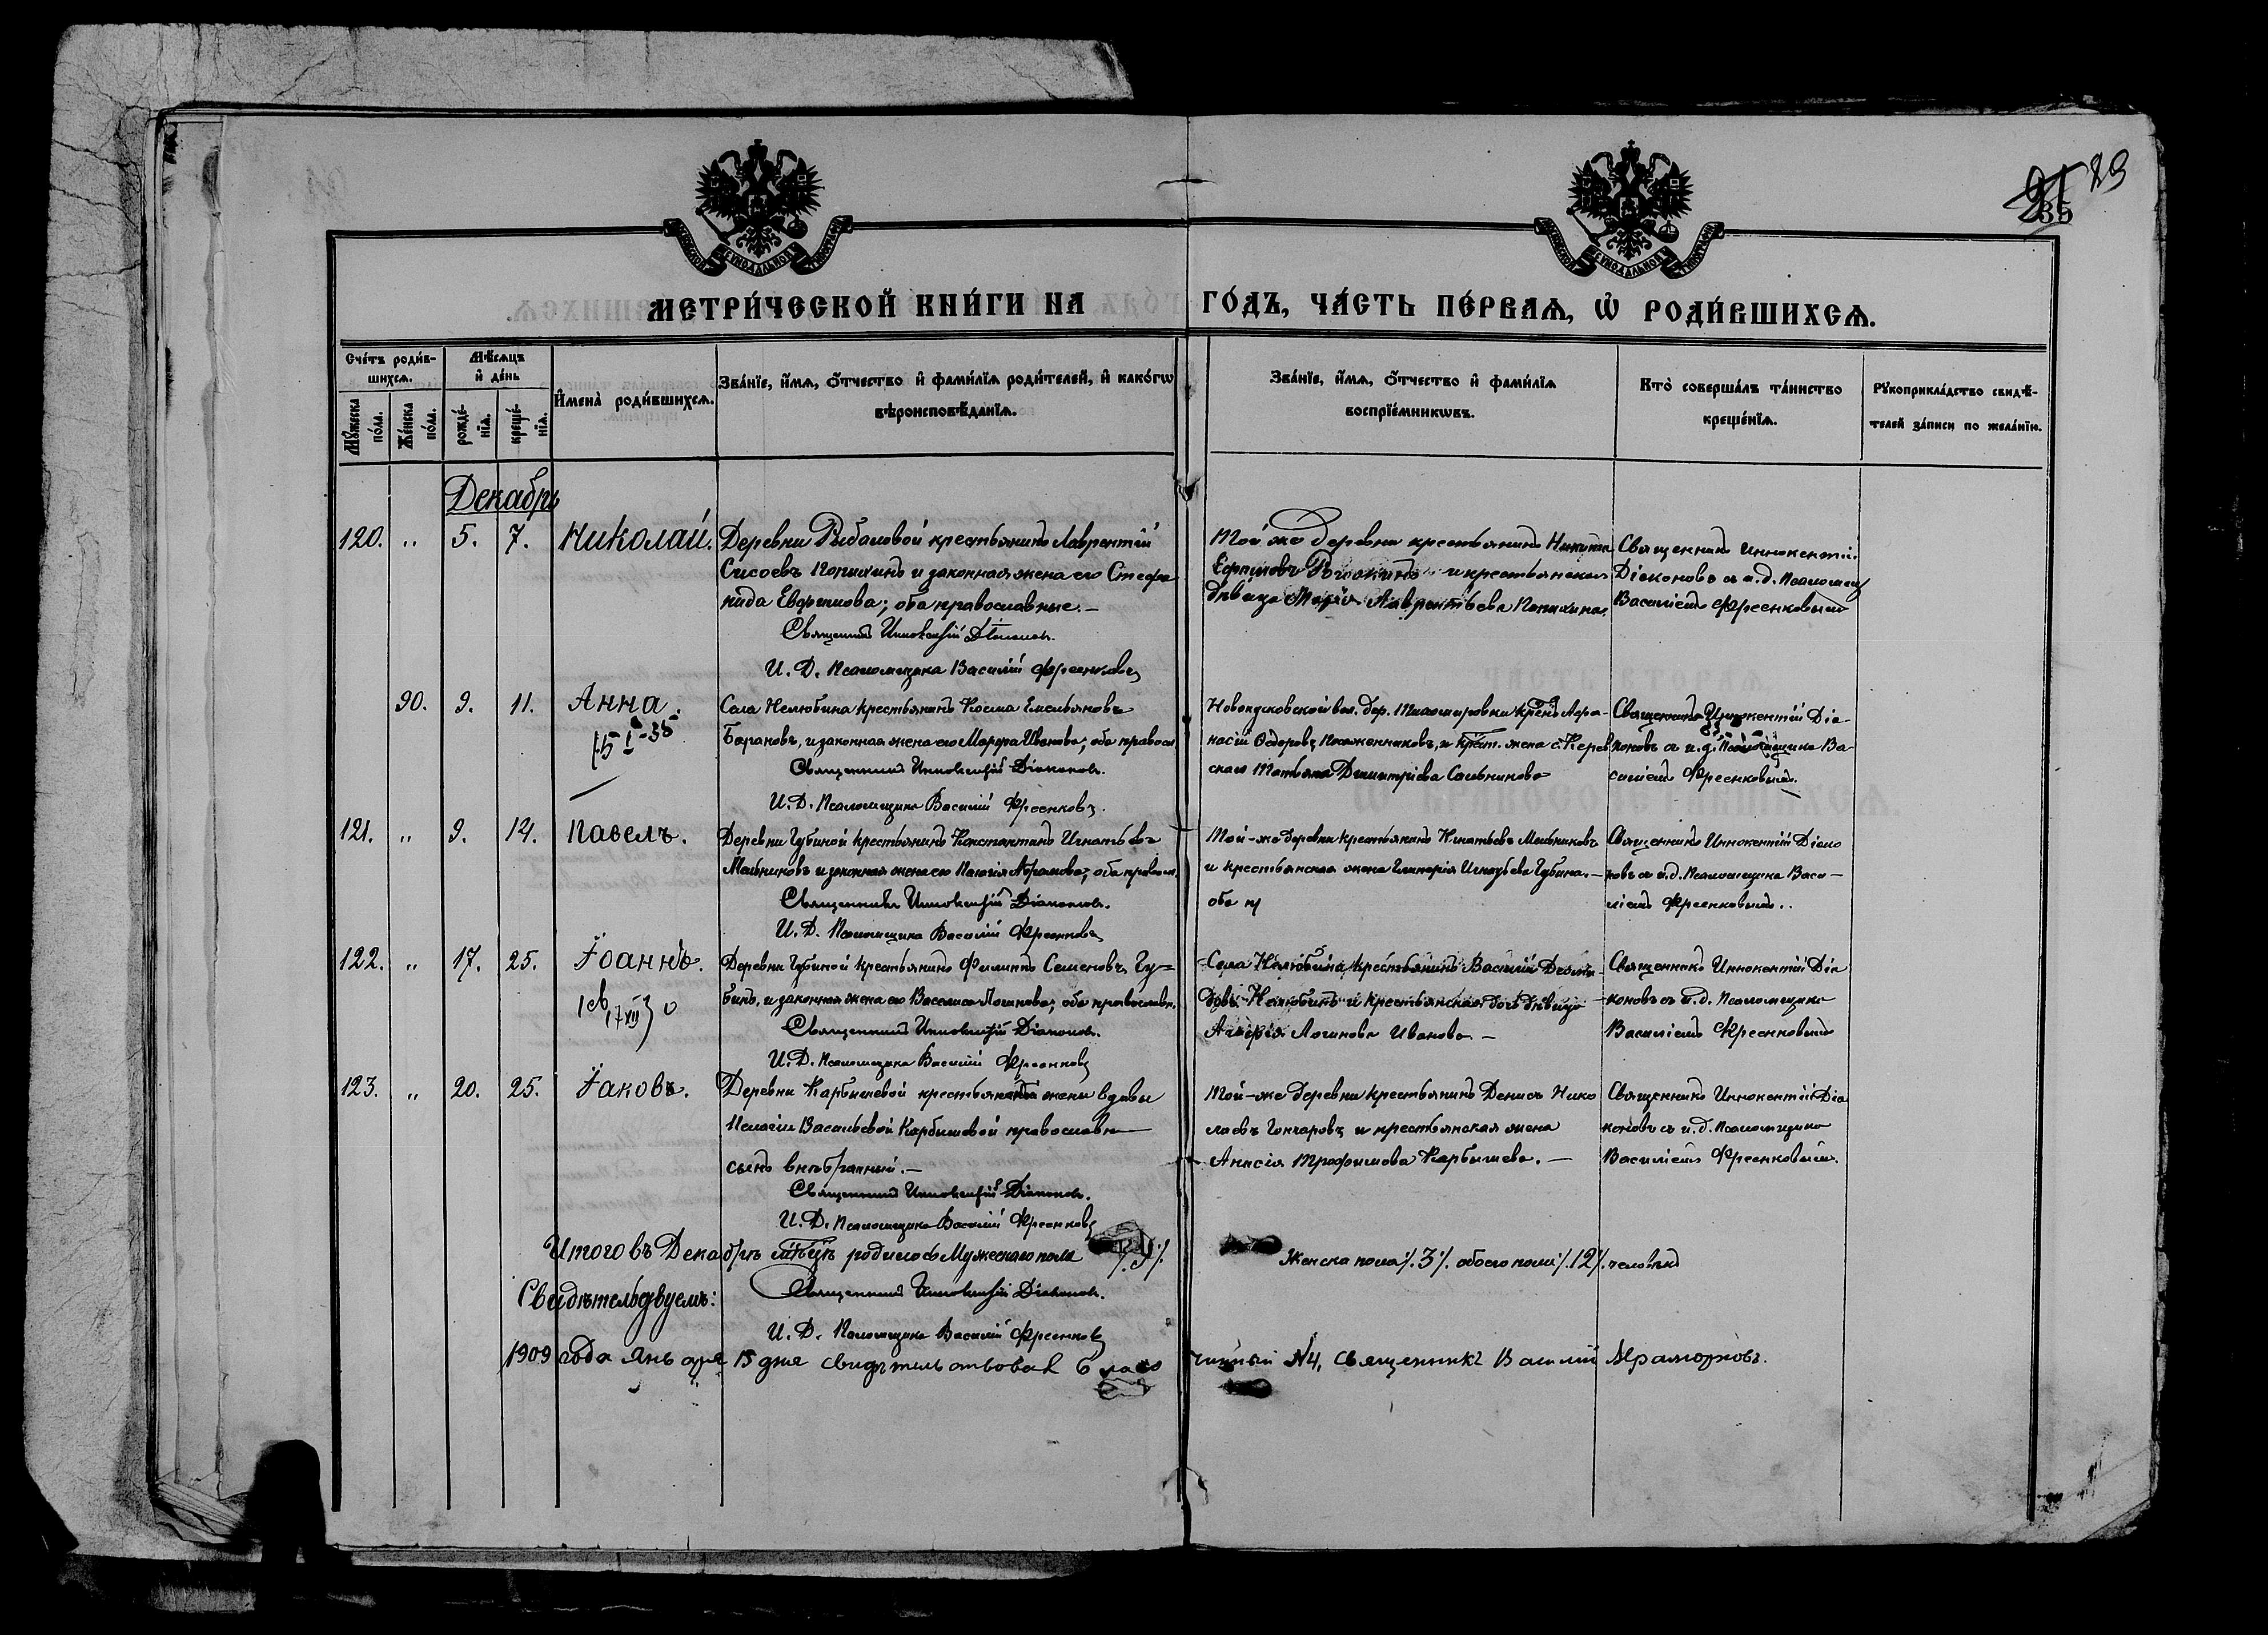 29
МЕТРИ́ЧЕСКОЙ КНИ́ГИ НА ГО́ДЪ, ЧА́СТЬ ПЕ́РВАѦ, Ѡ҆ РОДИ́ВШИХСѦ.
Сче́тъ роди́в-
шихсѧ.
Мꙋ́жеска по́ла.
Же́нска по́ла.
Мѣ́сѧцъ
и҆ де́нь
рожде́-
нїѧ.
креще́-
нїѧ.
И҆мена̀ роди́вшихсѧ.
Зва́нїе, и҆́мѧ, ѻ҆́тчество и҆ фами́лїѧ роди́телей, и҆ како́гѡ
вѣроисповѣ́данїѧ.
Зва́нїе, и҆́мѧ, ѻ҆́тчество и҆ фами́лїѧ
воспрїе́мникѡвъ.
Кто̀ соверша́лъ та́инство
креще́нїѧ.
Рꙋкоприкла́дство свидѣ́-
телей за́писи по жела́нїю.
Декабрь
120. „ 5. 7. Николай.
Деревни Рыбаловой крестьянинъ Лаврентій
Сысоевъ и законная жена его Стефа
нида Евфимова; оба православные.—
Священникъ Иннокентій Діаконовъ.
И. Д. Псаломщика Василій
Той же деревни крестьянинъ Никита
и крестьянская
дѣвица Марія Лаврентьева
Священникъ Иннокентій
Діаконовъ съ и. д. псаломщ
Василіемъ
90. 9. 11. Анна.
15 I-35
Села Нелюбина крестьянинъ Косма Емельяновъ
Барановъ, и законная жена его Марфа Иванова; оба правосл
Священникъ Иннокентій Діаконовъ.
И. Д. Псаломщика Василій
Новокусковской вол. дер. Афа-
насій Ѳедоровъ и крест. жена
Татьяна Димитріева
Священникъ Иннокентій Діа-
коновъ съ и. д. Псаломщика Ва-
силіемъ
121. „ 9. 14. Павелъ.
Деревни Губиной крестьянинъ Константинъ Игнатьевъ
Мельниковъ и законная жена его Пелагія Абрамова; оба правосл.
Священникъ Иннокентій Діаконовъ.
И. Д. Псаломщика Василій
Той-же деревни крестьянинъ Игнатьевъ Мельниковъ
и крестьянская жена Гликерія Игнатьева Губина.—
оба п
Священникъ Иннокентій Діако
новъ съ и. д. Псаломщика Васи-
ліемъ
122. „ 17. 25. Іоаннъ.
Деревни Губиной крестьянинъ Филиппъ Семеновъ Гу-
бинъ, и законная жена его Василиса Логинова; оба православн.
Священникъ Иннокентій Діаконовъ.
И. Д. Псаломщика Василій
Села Нелюбина крестьянинъ Василій
Нелюбинъ и крестьянская дочь дѣвица
Логинова Иванова —
Священникъ Иннокентій Діа
коновъ съ и. д. Псаломщика
Василіемъ
123. „ 20. 25. Іаковъ.
Деревни Карбышевой крестьянской жены вдовы
Пелагіи Васильевой Карбышевой православн
сынъ внѣбрачный.—
Священникъ Иннокентій Діаконовъ.
И. Д. Псаломщика Василій
Той-же деревни крестьянинъ Денисъ Нико
лаевъ Гончаровъ и крестьянская жена
Анисія Трофимова Карбышева. —
Священникъ Иннокентій Діа
коновъ съ и. д. Псаломщика
Василіемъ
Итого въ Декабрѣ мѣсяцѣ родилось Мужескаго пола ./.9./. Женска пола ./.3./. обоего пола ./.12./. человѣкъ
Свидѣтельствуемъ: Священникъ Иннокентій Діаконовъ.
И. Д. Псаломщика Василій
1909 года января 15 дня свидѣтельствовалъ благочинный №4, священникъ Василій